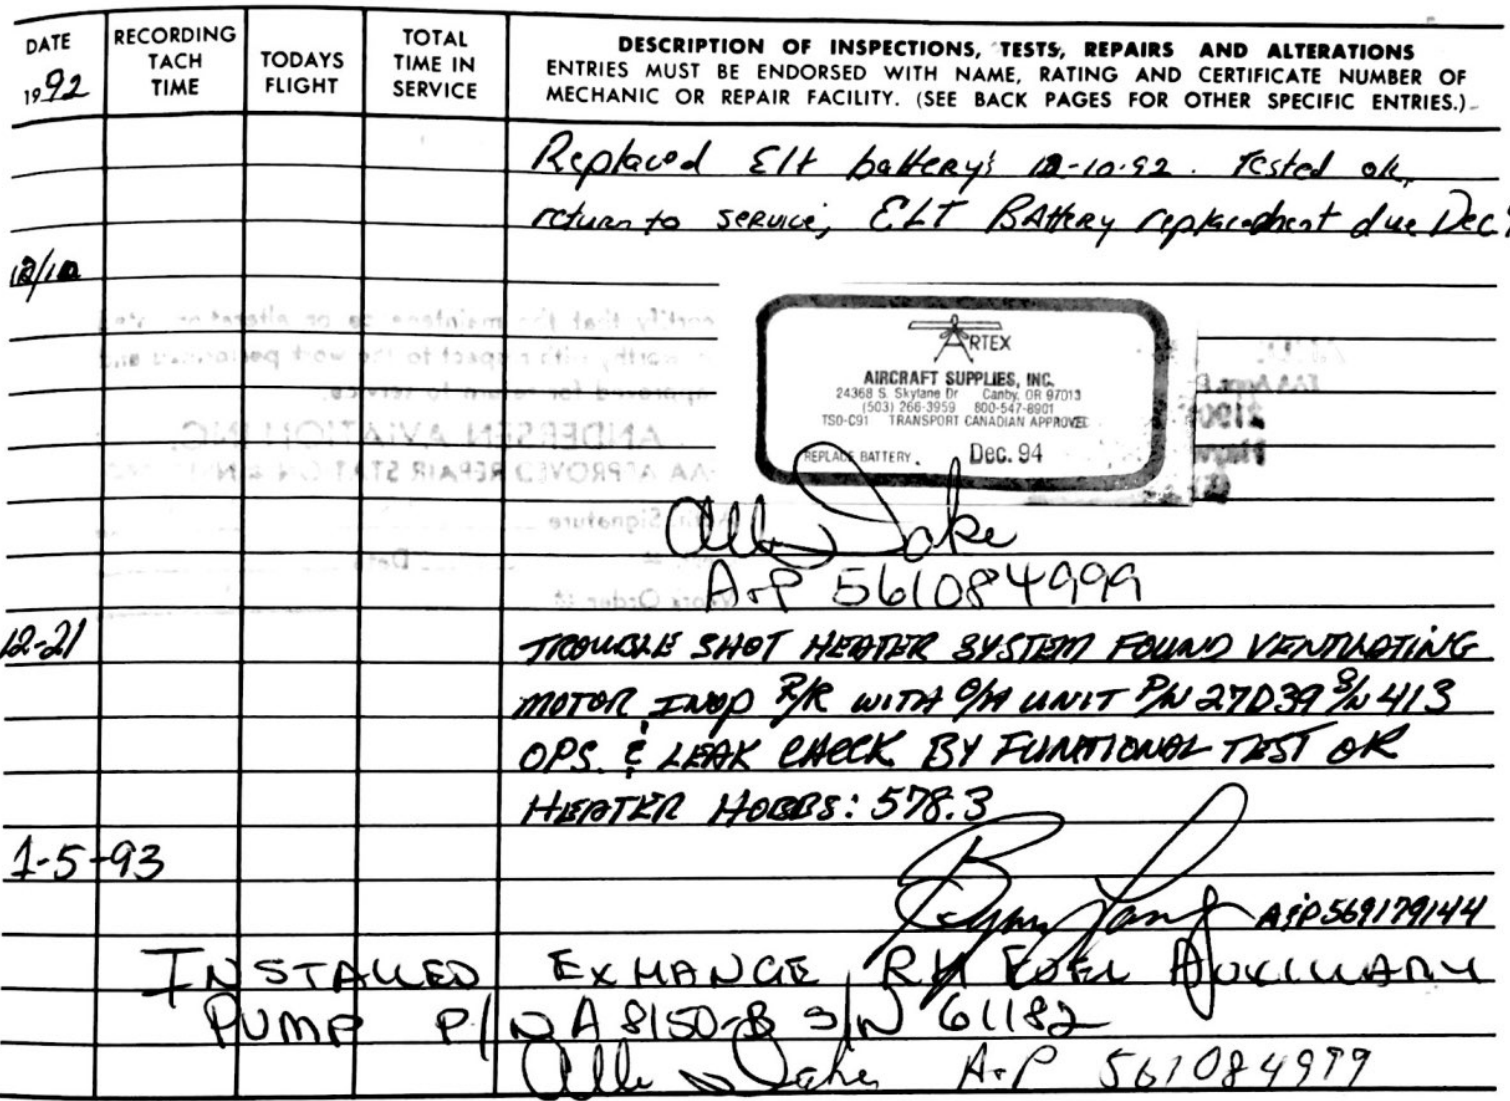 DATE
1992
RECORDING
TACH
TIME
TODAYS
FLIGHT
TOTAL
TIME IN
SERVICE
DESCRIPTION OF INSPECTIONS, TESTS, REPAIRS AND ALTERATIONS
ENTRIES MUST BE ENDORSED WITH NAME, RATING AND CERTIFICATE NUMBER OF
MECHANIC OR REPAIR FACILITY. (SEE BACK PAGES FOR OTHER SPECIFIC ENTRIES.)
Replaced Elt battery's 12-10-92. Tested ok,
return to service, ELT BAttery replacement due Dec
12/10
ARTEX
AIRCRAFT SUPPLIES, INC.
24368 S. Skylane Dr Canby, OR 97013
(503) 266-3959 800-547-8901
TSO-C91 TRANSPORT CANADIAN APPROVED
REPLACE BATTERY. Dec. 94
A&P 561084999
12-21 TROUBLE SHOT HEATER SYSTEM FOUND VENTILATING
MOTOR INOP R/R WITH O/H UNIT P/N 27D39 S/N 413
OPS. & LEAK CHECK BY FUNTIONAL TEST OK
HEATER HOBBS: 578.3
1-5-93
A&P 569179144
INSTALLED EXHANGE RH FUEL AUXILIARY
PUMP P/N A8150-B S/N 61182
A&P 561084999